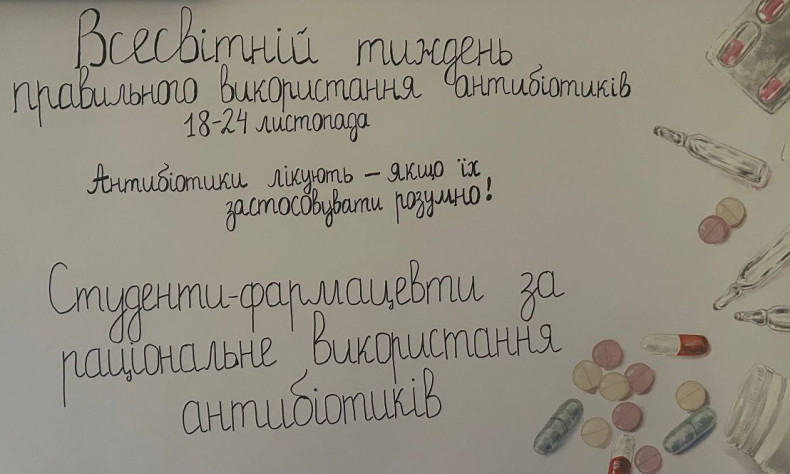 Всесвітній тиждень
правильного використання антибіотиків
18-24 листопада
Антибіотики лікують – якщо їх
застосовувати розумно!
Студенти-фармацевти за
раціональне використання
антибіотиків